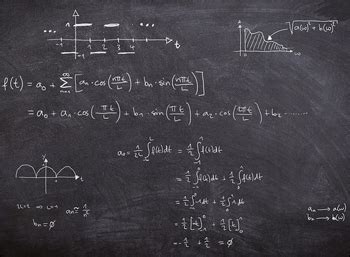 1
-1 1 2 3 4 t
-1
√a(ω)² + b(ω)²
ω
f(t) = a₀ + ∞∑n=1 [aₙ · cos(nπt/L) + bₙ · sin(nπt/L)]
= a₀ + a₁ · cos(πt/L) + b₁ · sin(πt/L) + a₂ · cos(2πt/L) + b₂ ........
a₀ = 1/2L ∫ f(t)dt = 1/2 ∫ f(t)dt
= 1/2 ∫ f(t)dt + 1/2 ∫ f(t)dt
= 1/2 ∫ -1dt + 1/2 ∫ 1dt
= 1/2 [-t] + 1/2 [t]
= -1/2 + 1/2 = ∅
bₙ = ∅
aₙ → a(ω)
bₙ → b(ω)